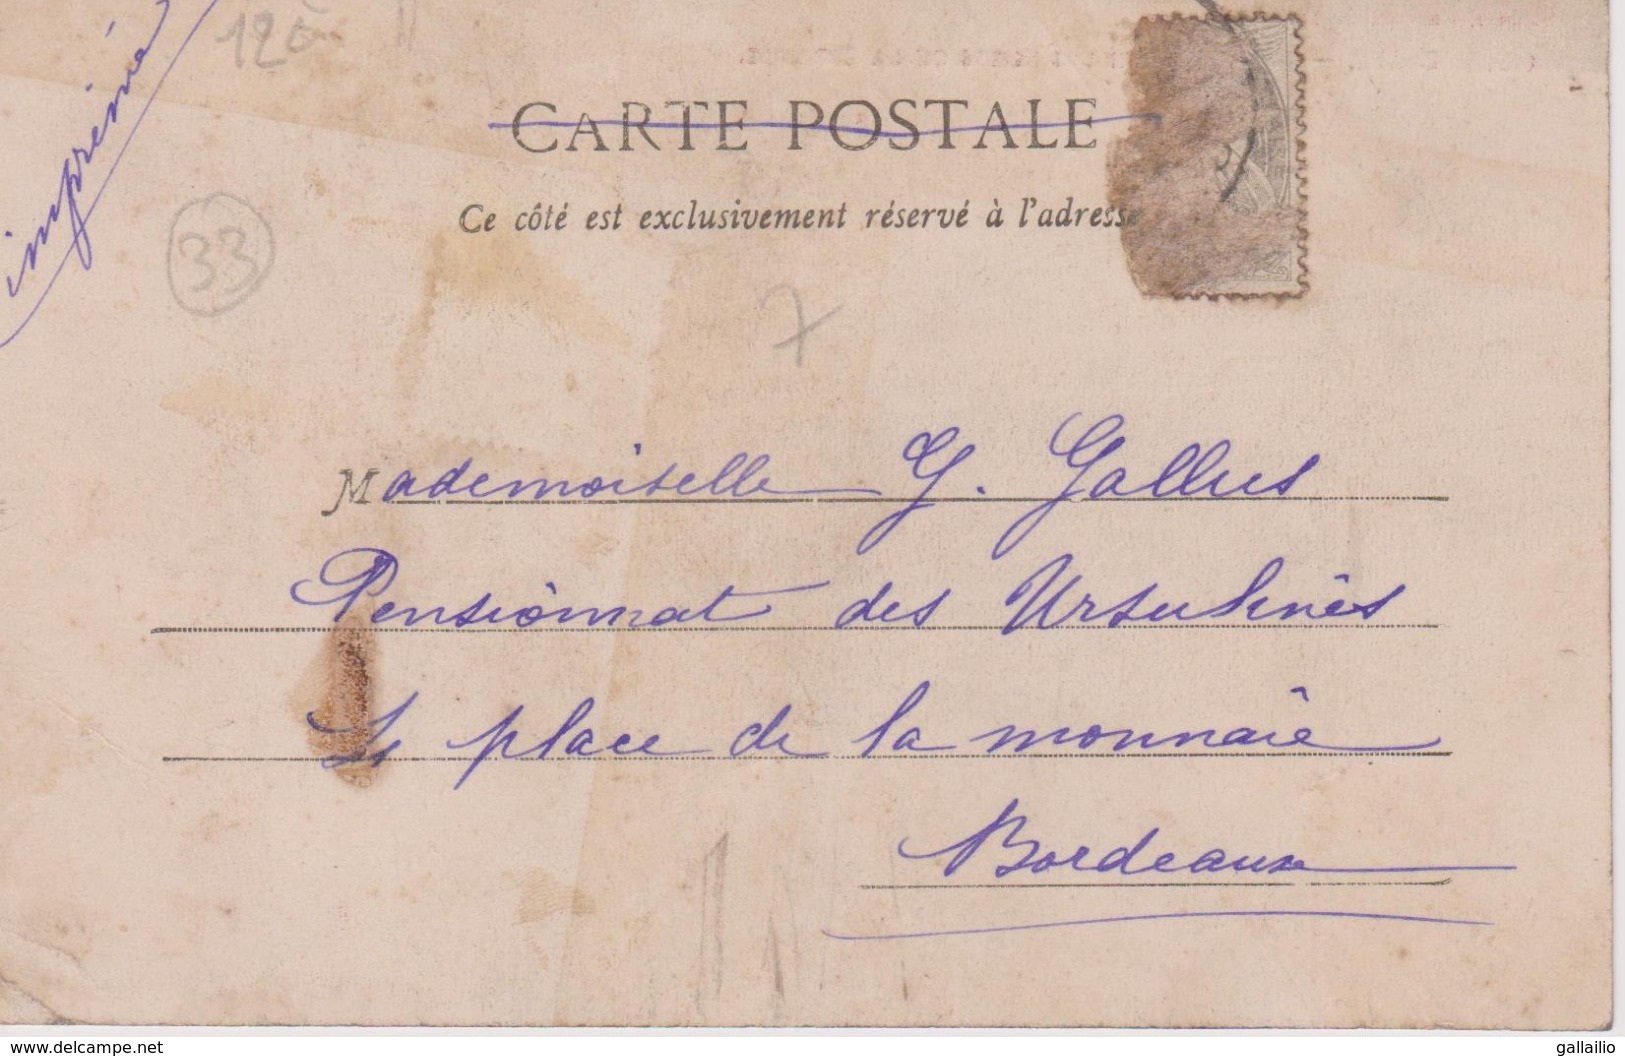 imprimé
120
CARTE POSTALE
Ce côté est exclusivement réservé à l'adresse
33
7
Mademoiselle G. Gallus
Pensionnat des Ursulines
place de la monnaie
Bordeaux
www.delcampe.net
gallailio